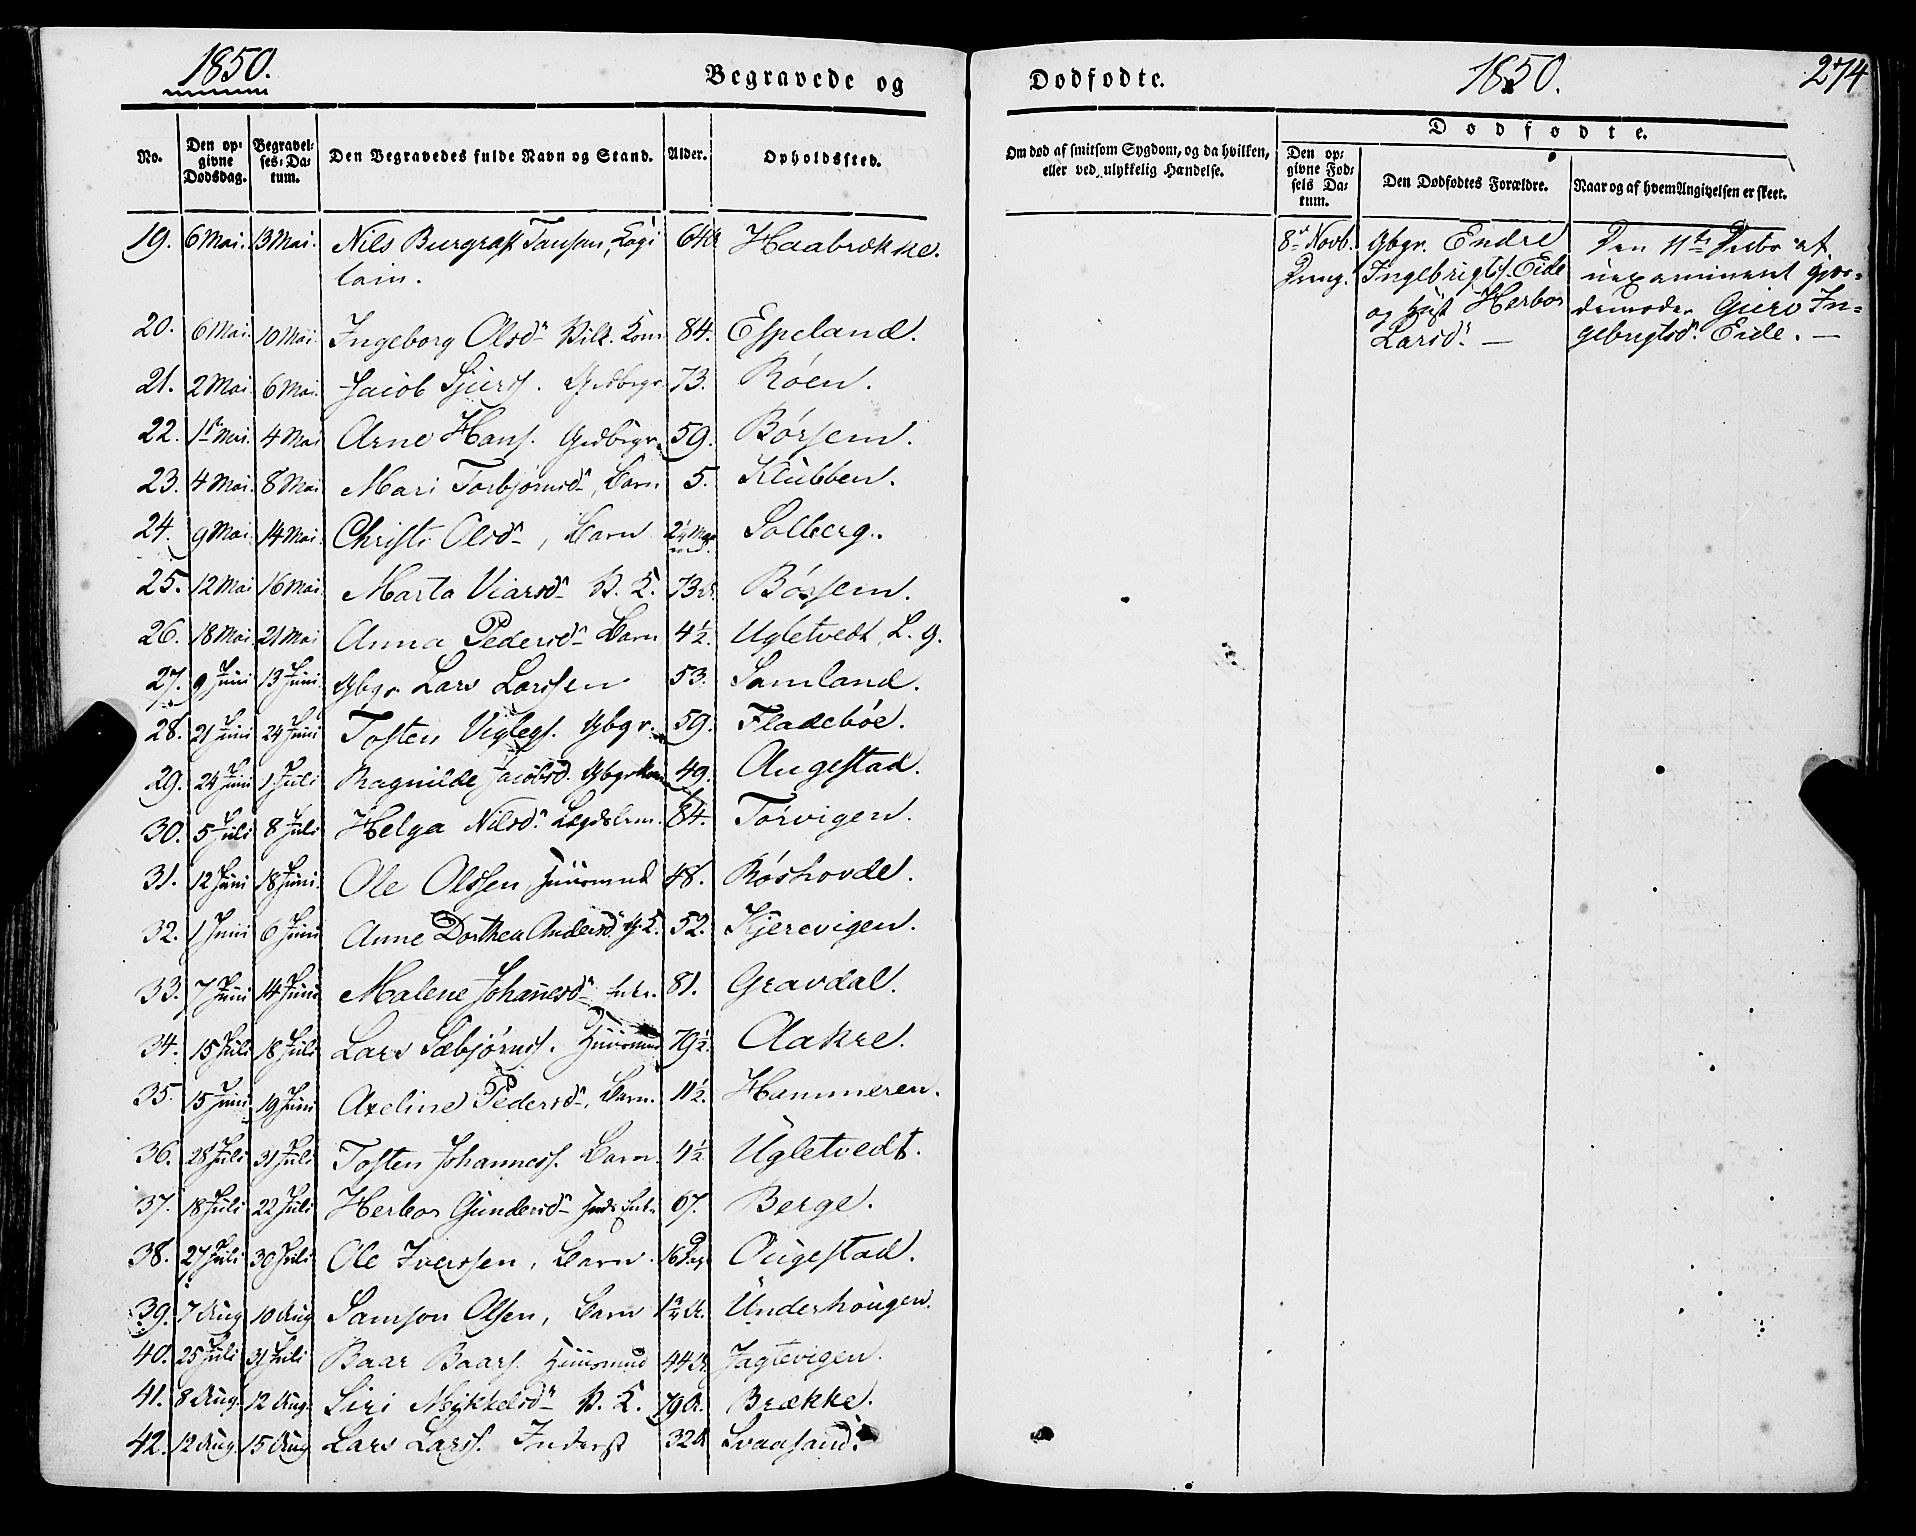 1850.
Begravede og
No. Den opgivne Dødsdag. Begravelses-Datum. Den Begravedes fulde Navn og Stand. Alder. Opholdssted.
19. 6 Mai. 13 Mai. Nils Burgraf Tausan, 64 Haabrække.
tain.
20. 6 Mai. 10 Mai. Ingeborg Olsdr. Vilk. Kone 84. Espeland.
21. 2 Mai 6 Mai. Jacob Sjurs. Grdbrgr. 73. Røen.
22. 1ste Mai. 4 Mai Arne Hans. Grdbrgr. 59. Børsem.
23. 4 Mai. 8 Mai Mari Torbjørnsdr., Barn 5. Klubben.
24. 9 Mai. 14 Mai. Christi Olsdr., Barn Solberg.
25. 12 Mai 16 Mai. Marta Viarsdr. V. K. 73 Børsem.
26. 18 Mai 21 Mai Anna Pedersdr. Barn 4½. Ugletvedt, L. g.
27. 9 Juni 13 Juni. Gbgr. Lars Larssen 53. Samland.
28. 21 Juni 24 Juni Tosten Viglegs. Gbgr. 59. Fladebøe.
29. 24 Juni 1 Juli Ragnilde Jacobsd. Gbgrkone 49. Augestad.
30. 5 Juli 8 Juli Helga Nilsdr. Lægdslem. 84. Torvigen.
31. 12 Juni 18 Juni. Ole Olssen, Huusmand 48. Røshovde.
32. 1 Juni 6 Juni Anne Dorthea Andersd. G. K. 52. Kjerevigen.
33. 7 Juni 14 Juni Malene Johannesdr. Enke. 81. Gravdal.
34. 15 Juli 18 Juli Lars Sæbjørns. Huusmand 79½. Aakre.
35. 15 Juni 19 Juni Axeline Pedersdr., Barn. 11½. Hammeren.
36. 28 Juli 31 Juli Tosten Johanness. Barn. 4½ Ugletvedt.
37. 18 Juli 22 Juli Herbor Gundersdr. Inds. Enke 67. Berge.
38. 27 Juli 30 Juli Ole Iverssen, Barn. 16 Dage Augestad.
39. 7 Aug 10 Aug Samson Olsen, Barn Underhougen.
40. 25 Juli 31 Juli Baar Baars. Huusmand 44 Jagtevigen.
41. 8 Aug. 12 Aug. Siri Mikkelsdr. V. K. 79 Brække.
42. 12 Aug. 15 Aug Lars Lars. Inderst 32 Svaasand.
Dødfødte. 1850. 274
Om død af smitsom Sygdom, og da hvilken, eller ved ulykkelig Hændelse.
Dødfødte.
Den opgivne Fødsels Datum. Den Dødfødtes Forældre. Naar og af hvem Angivelsen er skeet.
8de Novb. Gbgr. Endre Den 11te Debr. af
Dreng. Ingebrigts. Eide uexamineret Gjor=
og Hust Herbor demoder Guro In=
Larsdr. — gebrigtsdr. Eide. —